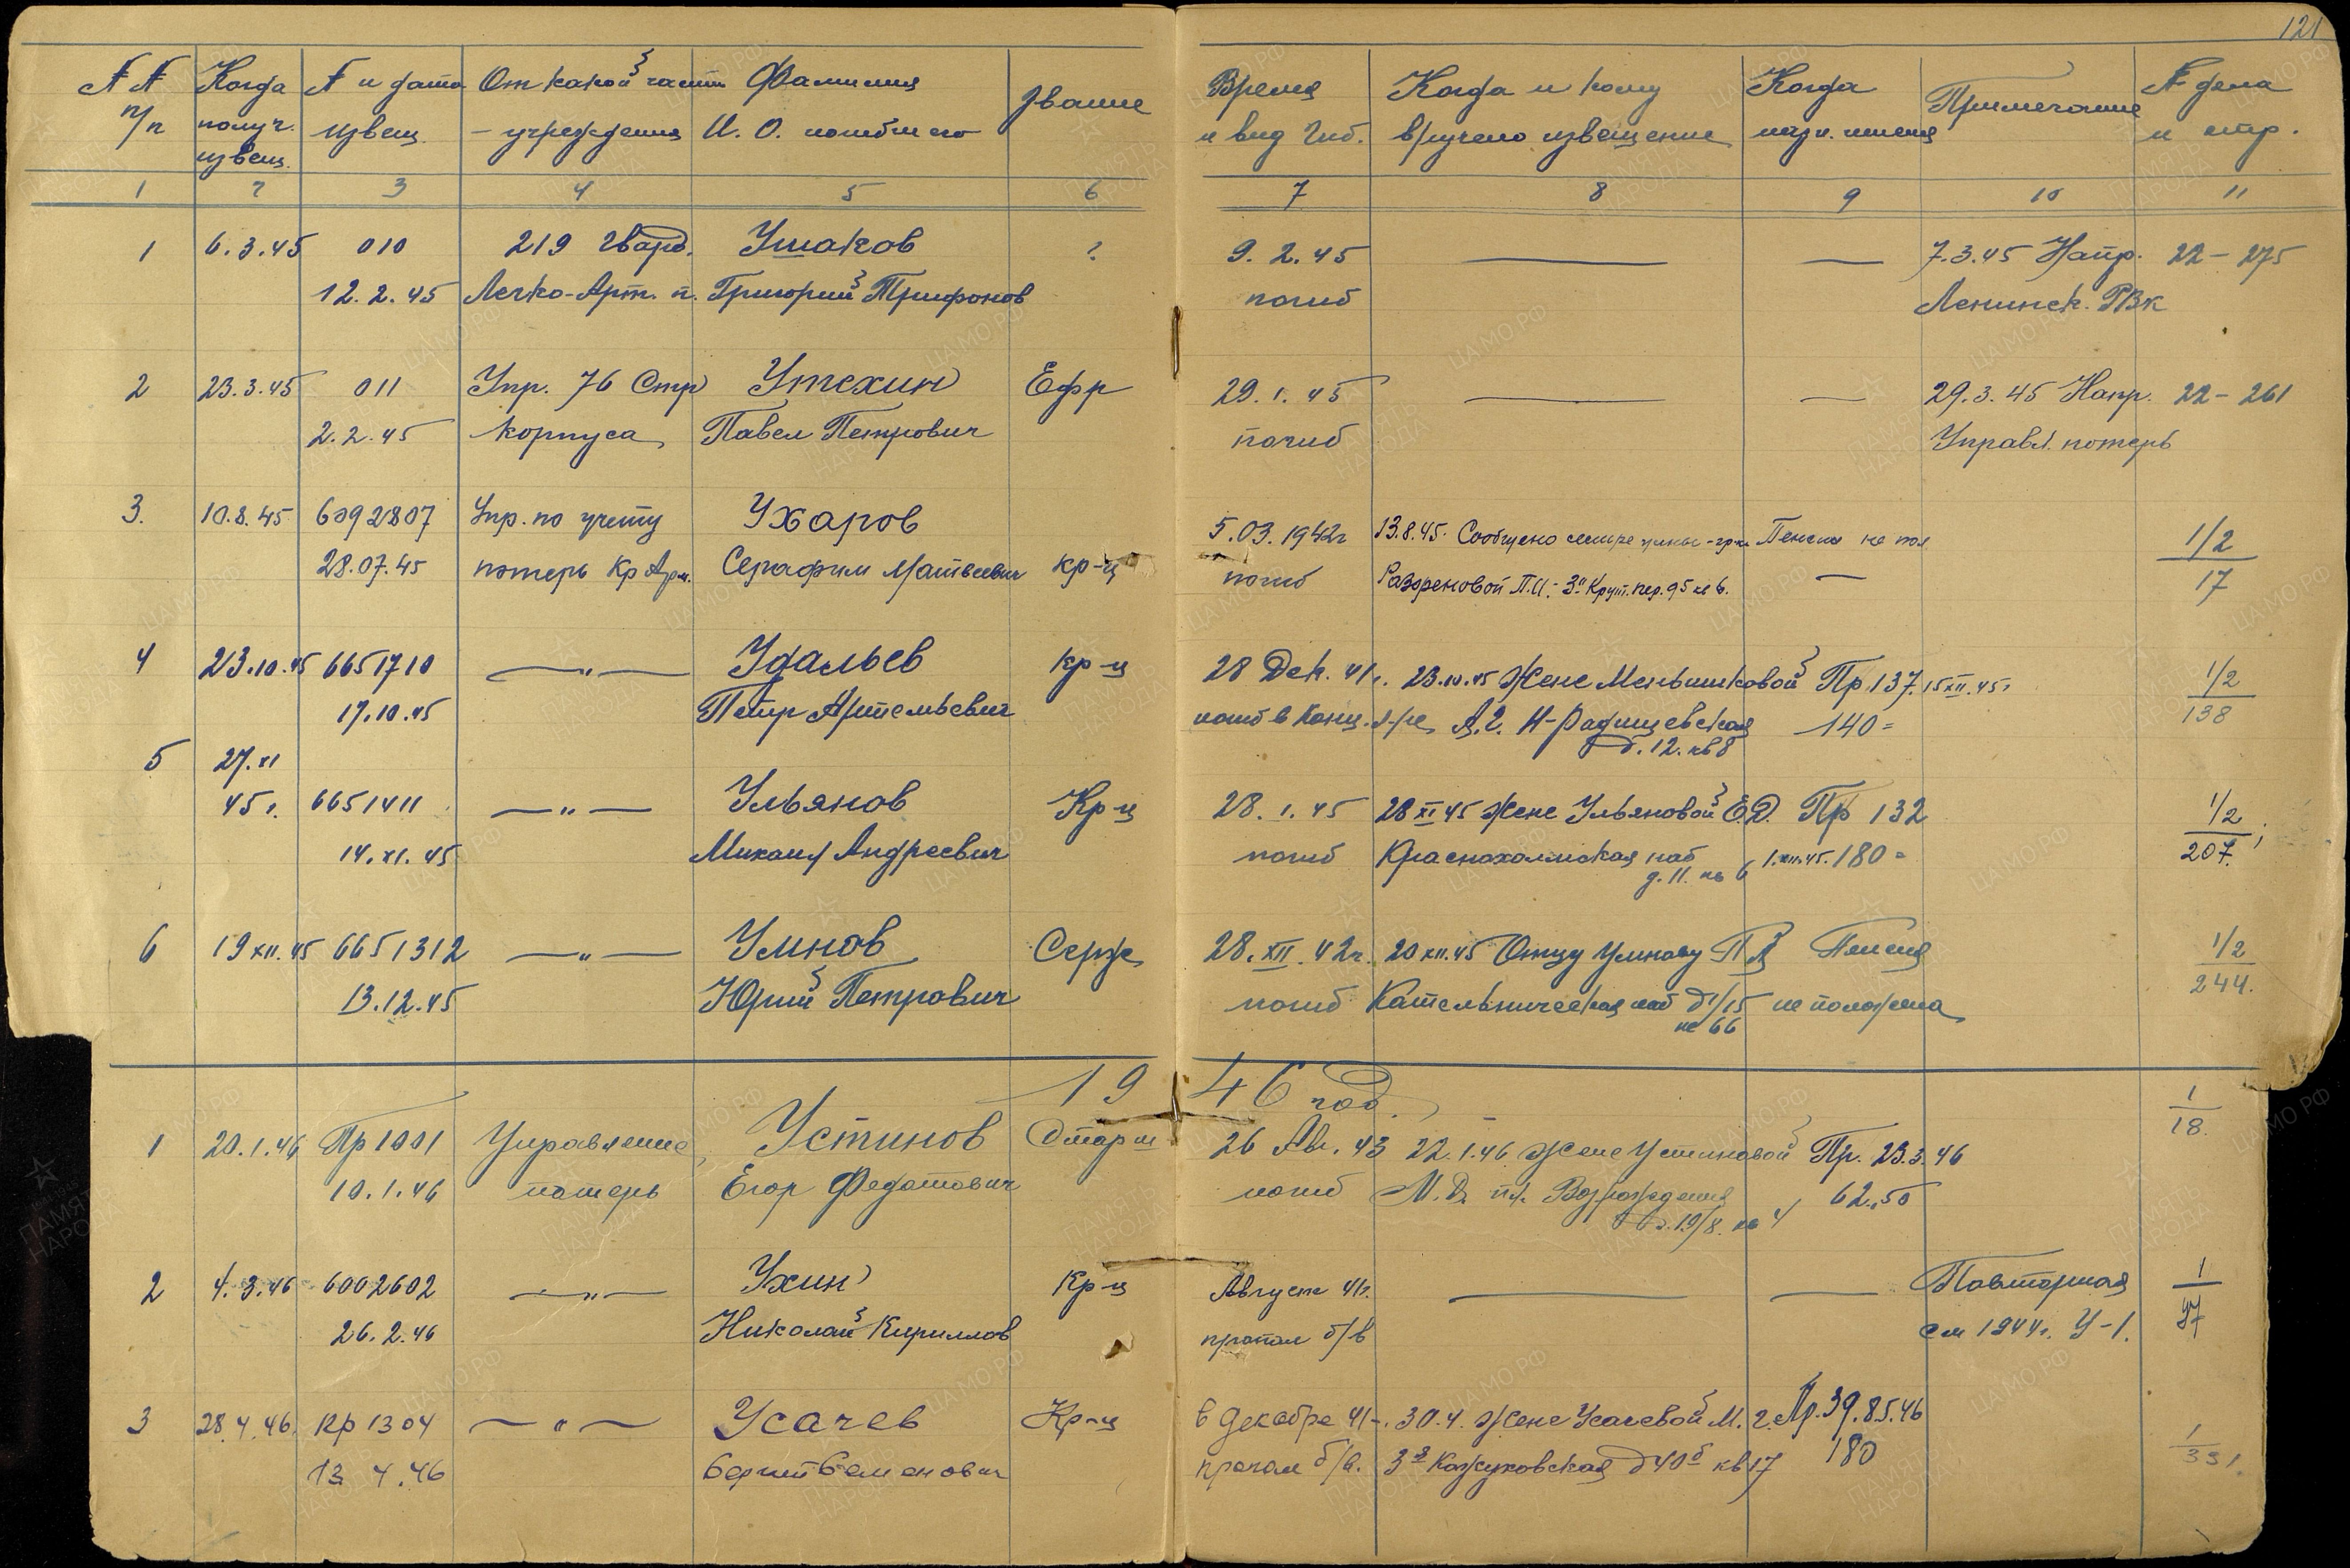 121
№ № п/п | Когда получ. извещ. | № и дата извещ. | От какой части - учреждения | Фамилия И. О. погибшего | Звание | Время и вид гиб. | Когда и кому вручено извещение | Когда назн. пенсия | Примечание | № дела и стр.
1 | 2 | 3 | 4 | 5 | 6 | 7 | 8 | 9 | 10 | 11
1 | 6.3.45 | 010 | 219 Гвард. | Ушаков | ? | 9.2.45 | — | — | 7.3.45 Напр. | 22-275
12.2.45 | Легко-Арт. п. | Григорий Трифонов | погиб | Ленинск. РВК
2 | 23.3.45 | 011 | Упр. 76 Стр | Утехин | Ефр | 29.1.45 | — | — | 29.3.45 Напр. | 22-261
2.2.45 | корпуса | Павел Петрович | погиб | Управл. потерь
3. | 10.8.45 | 6092807 | Упр. по учету | Ухаров | 5.03.1942г | 13.8.45. Сообщено | Пенсия не пол | 1/2
28.07.45 | потерь Кр Арм. | Серафим Матвеевич | кр-ц | погиб | Разореновой П.И. - 3й Крут. пер. 95 кв 6. | — | 17
4 | 23.10.45 | 6651710 | —"— | Удальев | кр-ц | 28 Дек. 41г. | 23.10.45 Жене Меньшиковой | Пр. 137. 15 XII. 45г | 1/2
17.10.45 | Петр Артемьевич | погиб в Конц. л-ре | А.Г. Н-Радищевская | 140= | 138
д. 12. кв 8
5 | 27.XI
45г. | 6651411 | —"— | Ульянов | Кр-ц | 28.1.45 | 28 XI 45 Жене Ульяновой Е.Д. | Пр 132 | 1/2
14.XI.45 | Михаил Андреевич | погиб | Краснохолмская наб | 1.XII.45. 180= | 207.
д. 11. кв 6
6 | 19 XII.45 | 6651312 | —"— | Умнов | Серж | 28.XII.42г. | 20 XII.45 Отцу Умнову П | Пенсия | 1/2
13.12.45 | Юрий Петрович | погиб | Котельническая наб д 1/15 | не положена | 244.
кв 66
1946 год.
1 | 20.1.46 | Пр 1001 | Управление | Устинов | Старш | 26 Авг. 43 | 22.1.46 Жене Устиновой | Пр. 23.3.46 | 1/18.
10.1.46 | потерь | Егор Федотович | погиб | М.Д. | 62.50
д. 19/8. кв 4
2 | 4.3.46 | 6002602 | —"— | Ухин | Кр-ц | Август 41г. | — | — | Повторная | 1
26.2.46 | Николай Кириллов | пропал б/в | см 1944г. У-1. | 97
3 | 28.4.46. | Кр 1304 | —"— | Усачев | Кр-ц | в декабре 41- | 30.4. Жене Усачевой М. Г. | Пр. 39. 8.5.46 | 1
13 4.46 | Сергей Семенович | пропал б/в. | 3я Кожуховская д 40б кв 17 | 180 | 331.